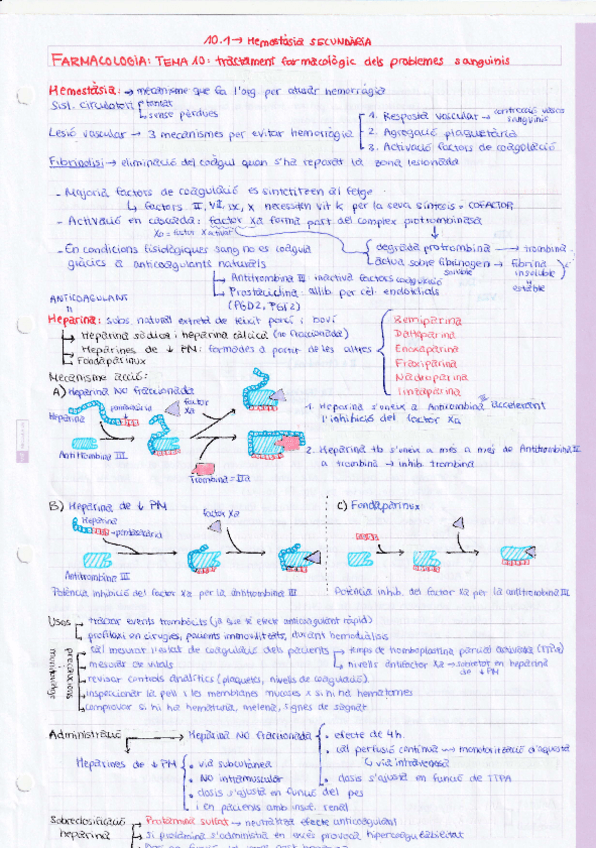 10.1 → Hemostàsia SECUNDÀRIA
FARMACOLOGIA: TEMA 10: tractament farmacològic dels problemes sanguinis
Hemostàsia: → mecanisme que fa l'org per aturar hemorràgia
Sist. circulatori tancat
sense pèrdues
Lesió vascular → 3 mecanismes per evitar hemorràgia
1. Resposta vascular → contracció vasos sanguinis
2. Agregació plaquetària
3. Activació factors de coagulació
Fibrinolisi → eliminació del coàgul quan s'ha reparat la zona lesionada
- Majoria factors de coagulació es sintetitzen al fetge
↳ factors II, VII, IX, X necessiten vit K per la seva síntesis = COFACTOR
- Activació en cascada: factor Xa forma part del complex protrombinasa
Xa = factor X activat
degrada protrombina → trombina
actua sobre fibrinogen → fibrina
soluble
insoluble
estable
- En condicions fisiològiques sang no es coagula
gràcies a anticoagulants naturals
Antitrombina III: inactiva factors coagulació
Prostaciclina: allib. per cèl. endotelials
(PGD2, PGI2)
ANTICOAGULANT
Heparina: subs. natural extreta de teixit porcí i boví
Heparina sòdica i heparina càlcica (no fraccionada)
Heparines de ↓ PM: formades a partir de les altres
Fondaparinux
Bemiparina
Dalteparina
Enoxaparina
Fraxiparina
Nadroparina
Tinzaparina
Mecanisme acció:
A) Heparina NO fraccionada
Heparina
pentasacàrid
factor Xa
Antitrombina III
Trombina = IIa
1. Heparina s'uneix a Antitrombina III accelerant
l'inhibició del factor Xa
2. Heparina tb s'uneix a més a més de Antitrombina III
a trombina → inhib. trombina
B) Heparina de ↓ PM
Heparina
factor Xa
Antitrombina III
Potència inhibició del factor Xa per la antitrombina III
C) Fondaparinux
Potència inhib. del factor Xa per la antitrombina III
Usos → tractar events trombòtics (ja que té efecte anticoagulant ràpid)
profilaxi en cirugies, pacients immobilitzats, durant hemodiàlisi
precaucions
cal mesurar l'estat de coagulació dels pacients → temps de tromboplastina parcial activada (TTPa)
nivells antifactor Xa → sobretot en heparina de ↓ PM
mesurar cte vitals
revisar controls analítics (plaquetes, nivells de coagulació)
inspeccionar la pell i les membranes mucoses x si hi ha hematomes
comprovar si hi ha hematúria, melena, signes de sagnat
Administració → Heparina NO fraccionada
• efecte de 4h.
• cal perfusió contínua → monotorització d'aquesta
↳ via intravenosa
• dosis s'ajusta en funció de TTPA
Heparines de ↓ PM
• via subcutània
• NO intramuscular
• dosis s'ajusta en funció del pes
i en pacients amb insuf. renal
Sobredosificació heparina
Protamina sulfat → neutralitza efecte anticoagulant
Si protamina s'administra en excés provoca hipercoagulabilitat